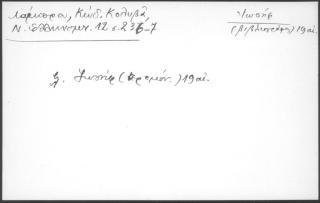 Λάμπρου, Κώδ. Κολυβᾶ
Ν. Ἑλληνομν. 12 σ. 236-7
Ἰωσήφ
(βιβλιογράφος) 19 αἰ.
Ἰωσήφ (ἱερομόν.) 19 αἰ.